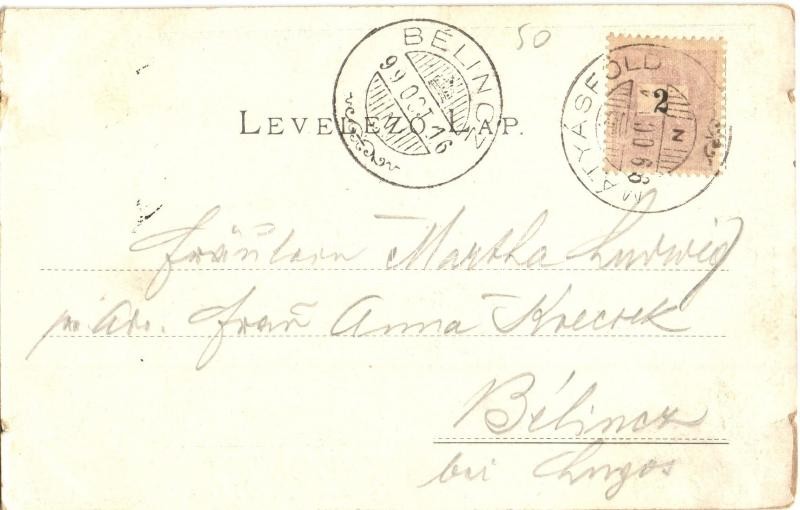 50
BÉLINCZ
99 OCT 16
N
MÁTYÁSFÖLD
899 OC
N
2
LEVELEZŐ LAP.
Fräulein Martha Ludwig
pr. Adr. Frau Anna Krecsek
Bélincz
bei Lugos